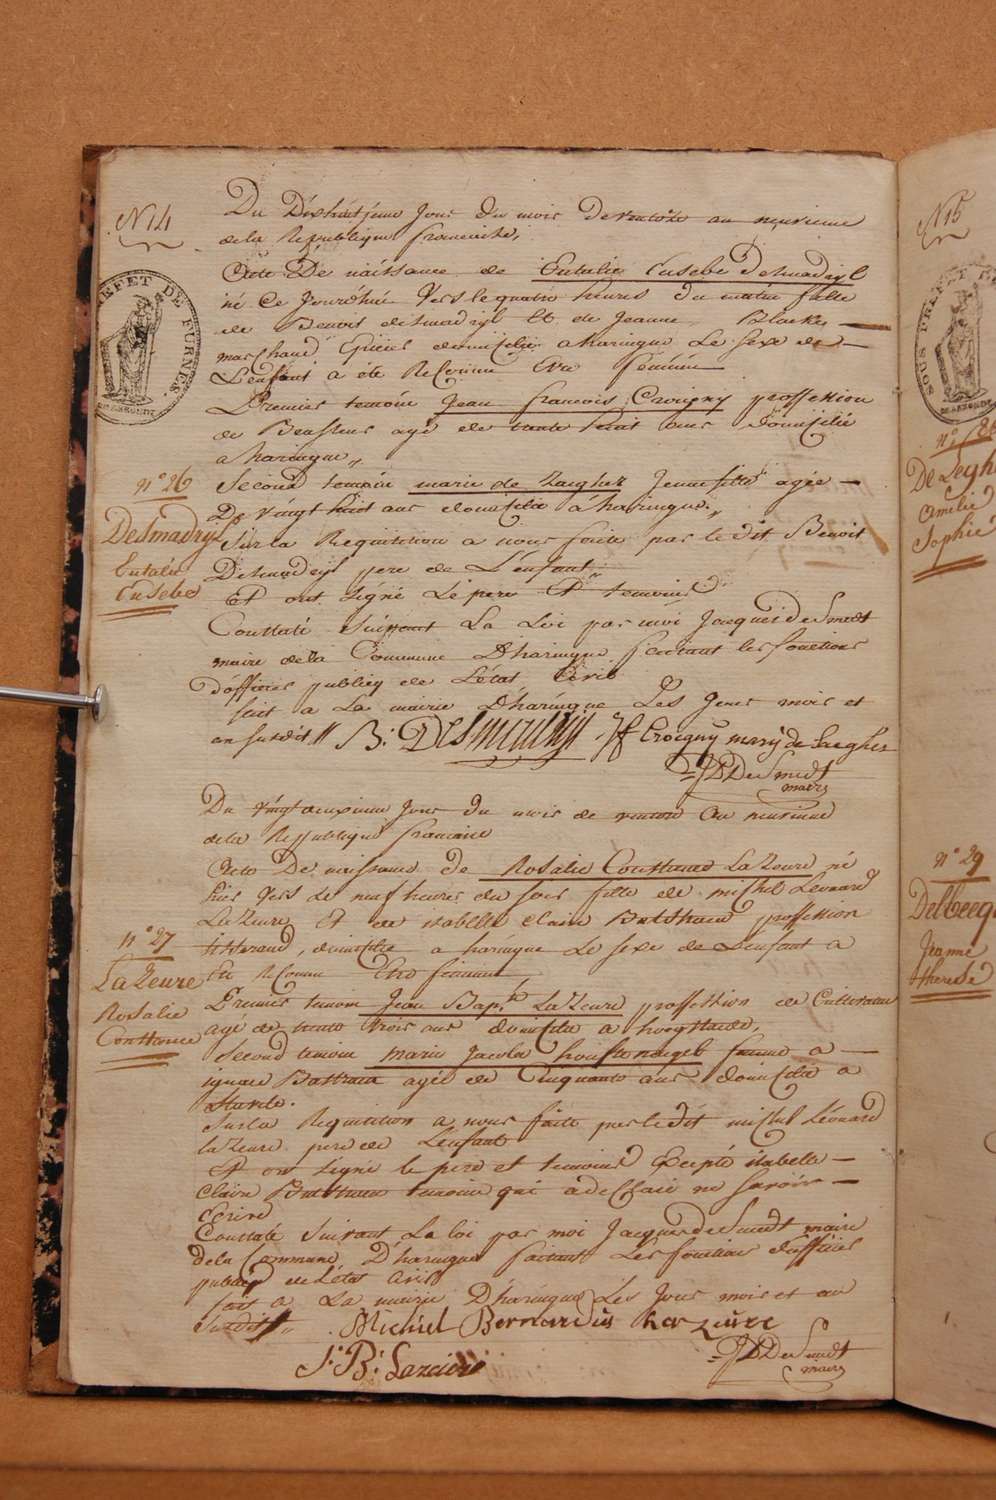 N 14
Du Dixhuitieme Jour du mois De ventose an neuvieme
de la Republique francaise,
Acte De naissance de Eutalie Eusebe Desmadryl
né Ce Jourdhui Vers le quatre heures du matin fille
de Benoit desmadryl Et de Jeanne Blaeke
marchand Epicier domicilie a haringue Le sexe de
L'enfant à été Reconnu Etre féminin
Premier temoin Jean francois Crocqny proffession
de agé de trente huit ans domicilié
a haringue,,
Second temoin marie de Zaegher Jeune fille agée
De vingt huit ans domicilia à haringue,,
Sur la Requisition a nous faite par le dit Benoit
Desmadryl pere de L'enfant
Et ont signé Le pere Et temoins
Constaté Suivant La Loi par moi Jacques de Smedt
maire de la Commune D'haringue faisant les fonctions
d'officier publicq de L'état Civil
fait a La mairie D'haringue Les Jour mois et
an susdit // B: DESmadryl JF Crocqny mary de Saegher
JD De Smedt
maire
n° 26
Desmadryl
Eutalie
Eusebe
SOUS PREFET DE FURNES.
Du vingt deuxieme Jour du mois de ventose an neuvieme
de la Republique francaise
Acte De naissance de Rosalie Constance LaZeure né
hier vers le neuf heures du soir fille de michel Leonard
LaZeure Et de isabelle Claire Batthaeu proffession
tisserand, domicilié a haringue Le sexe de L'enfant a
Eté Reconnu Etre feminin
Premier temoin Jean Bapt. LaZeure proffession de Cultivateur
agé de trente trois ans domicilié a hoogstade,
Second temoin marie Jacoba femme a
ignace Battraeu agée de Cinquante ans domicilia a
Stavele.
Sur la Requisition a nous faite par le dit michel Léonard
laZeure pere de L'enfant
Et ont signé le pere et temoins Excepté isabelle
Claire Batthaeu temoin qui a declaré ne savoir
Ecrire
Constaté suivant La loi par moi Jacques de Smedt maire
de la Commune D'haringue faisant Les fonctions d'officier
publicq de L'état Civil
fait a La mairie D'haringue Les Jour mois et an
susdit //. Michiel Bernardus Lazeure
J: B: Lazeure
JD De Smedt
maire
n° 27
LaZeure
Rosalie
Constance
N 15
SOUS PREFET
De Zegh
Amilie
Sophie
n° 29
Delbecq
Jeanne
therese